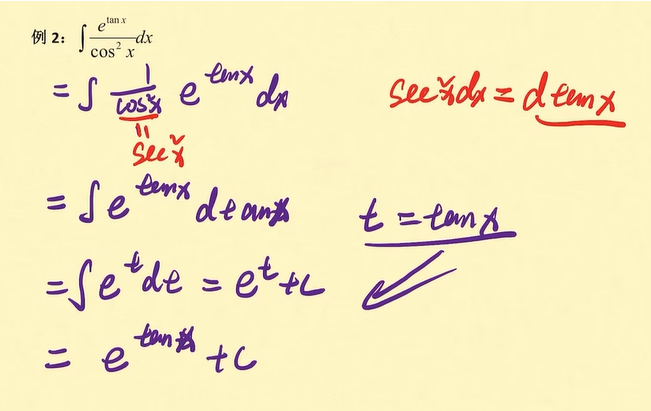 例 2： ∫ e^{tan x} / cos² x dx
= ∫ 1/cos²x e^{tanx} dx
sec²x dx = d tanx
= sec²x
= ∫ e^{tanx} d tanx
t = tanx
= ∫ e^t dt = e^t + C
= e^{tanx} + C